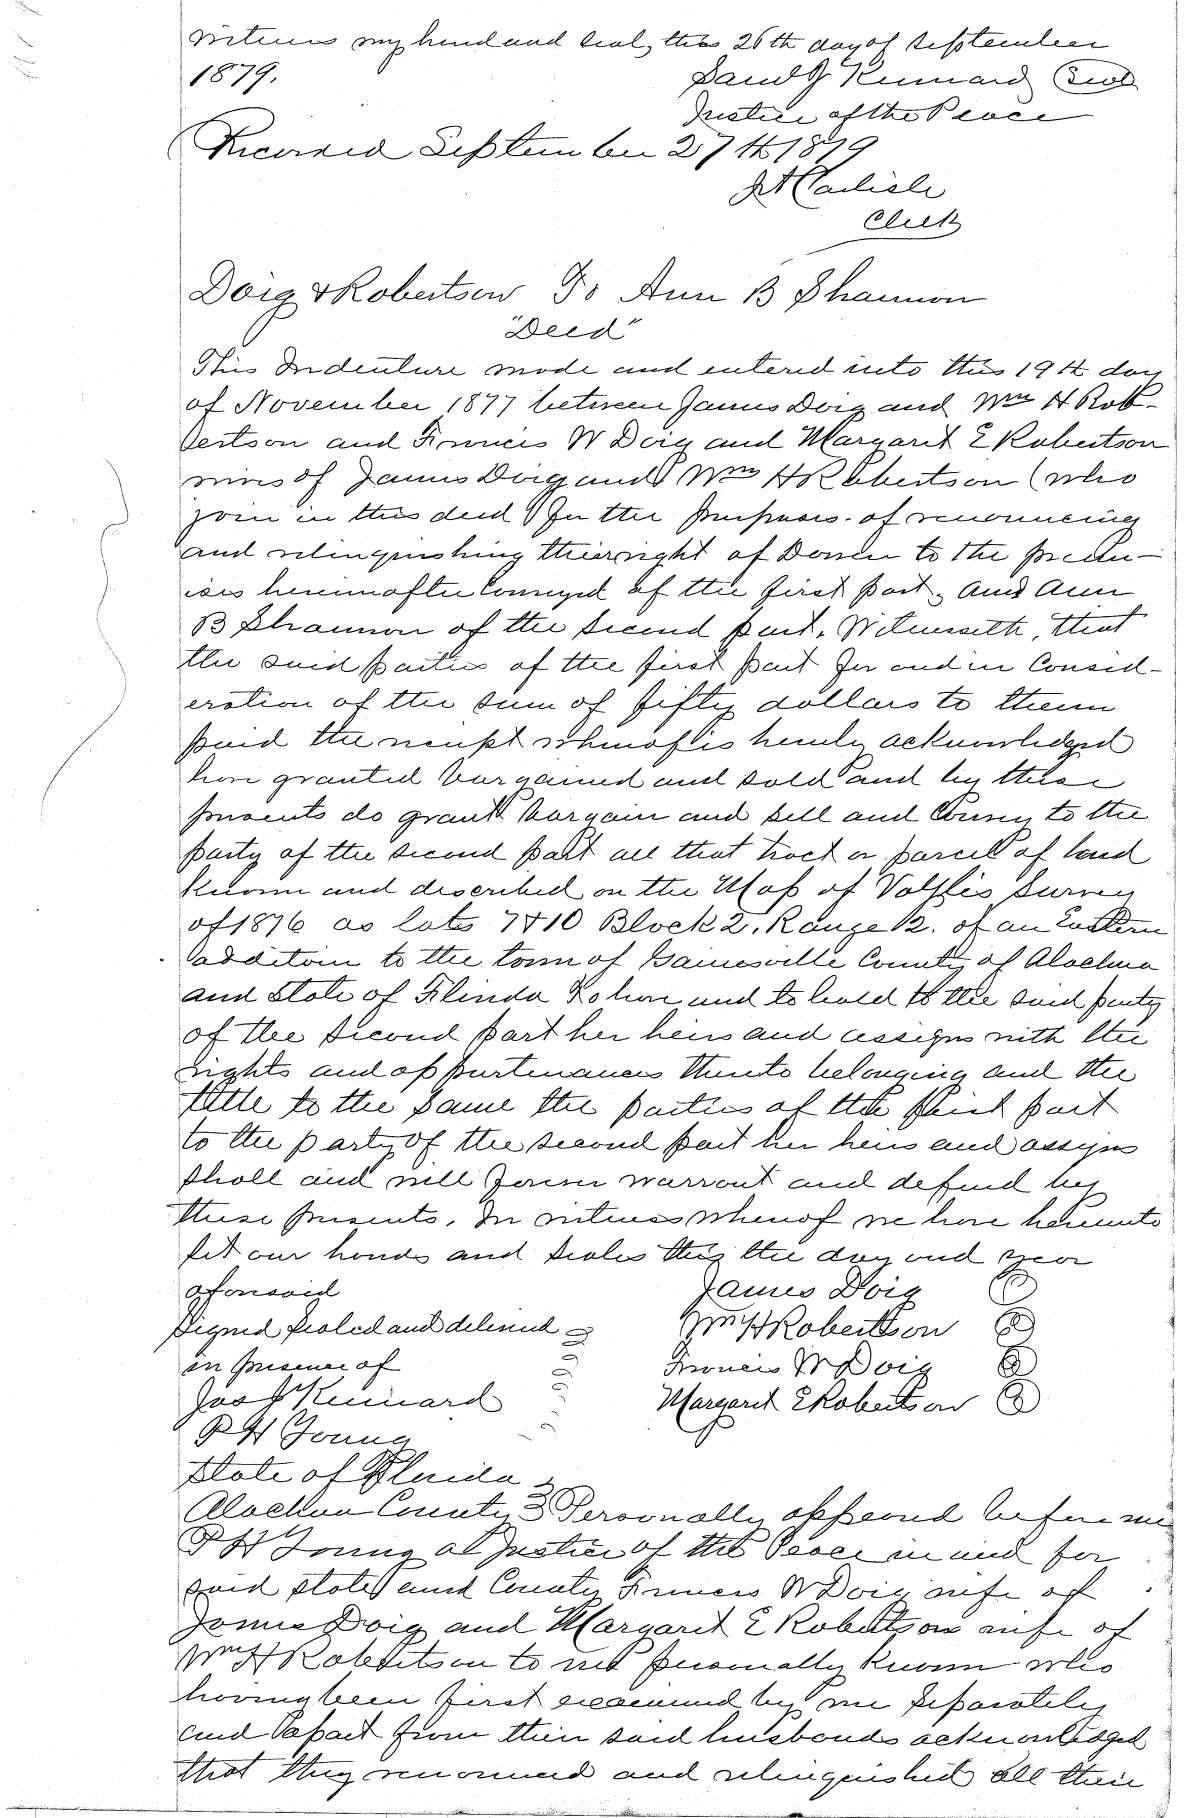 Witness my hand and seal, this 26th day of September
1879.
Kennard Seal
Justice of the Peace
Recorded September 27th 1879
Carlisle
Clerk
Doig & Robertson To Ann B Shannon
"Deed"
This Indenture made and entered into this 19th day
of November 1877 between James Doig and Wm H Rob-
ertson and Francis W Doig and Margaret E Robertson
wives of James Doig and Wm H Robertson (who
join in this deed for the purposes of renouncing
and relinquishing their right of Dower to the prem-
ises hereinafter Conveyed of the first part, and Ann
B Shannon of the second part, Witnesseth, that
the said parties of the first part for and in Consid-
eration of the sum of fifty dollars to them
paid the receipt whereof is hereby acknowledged
have granted bargained and sold and by these
presents do grant bargain and sell and Convey to the
party of the second part all that tract or parcel of land
known and described on the Map of Survey
of 1876 as lots 7 & 10 Block 2, Range 12. of an Eastern
additoin to the town of Gainesville County of Alachua
and State of Florida To have and to hold to the said party
of the second part her heirs and assigns with the
rights and appurtenances thereto belonging and the
title to the same the parties of the first part
to the party of the second part her heirs and assigns
shall and will forever warrant and defend by
these presents. In witness whereof we have hereunto
set our hands and seales this the day and year
aforesaid James Doig
Signed sealed and delivered Wm H Robertson
in presence of Francis W Doig
Jas Kennard Margaret E Robertson
P H Young
State of Florida
Alachua County Personally appeared before me
P H Young a Justice of the Peace in and for
said state and County Francis W Doig wife of
James Doig and Margaret E Robertson wife of
Wm H Robertson to me personally known who
having been first examined by me separately
and apart from their said husbands acknowledged
that they renounced and relinquished all their